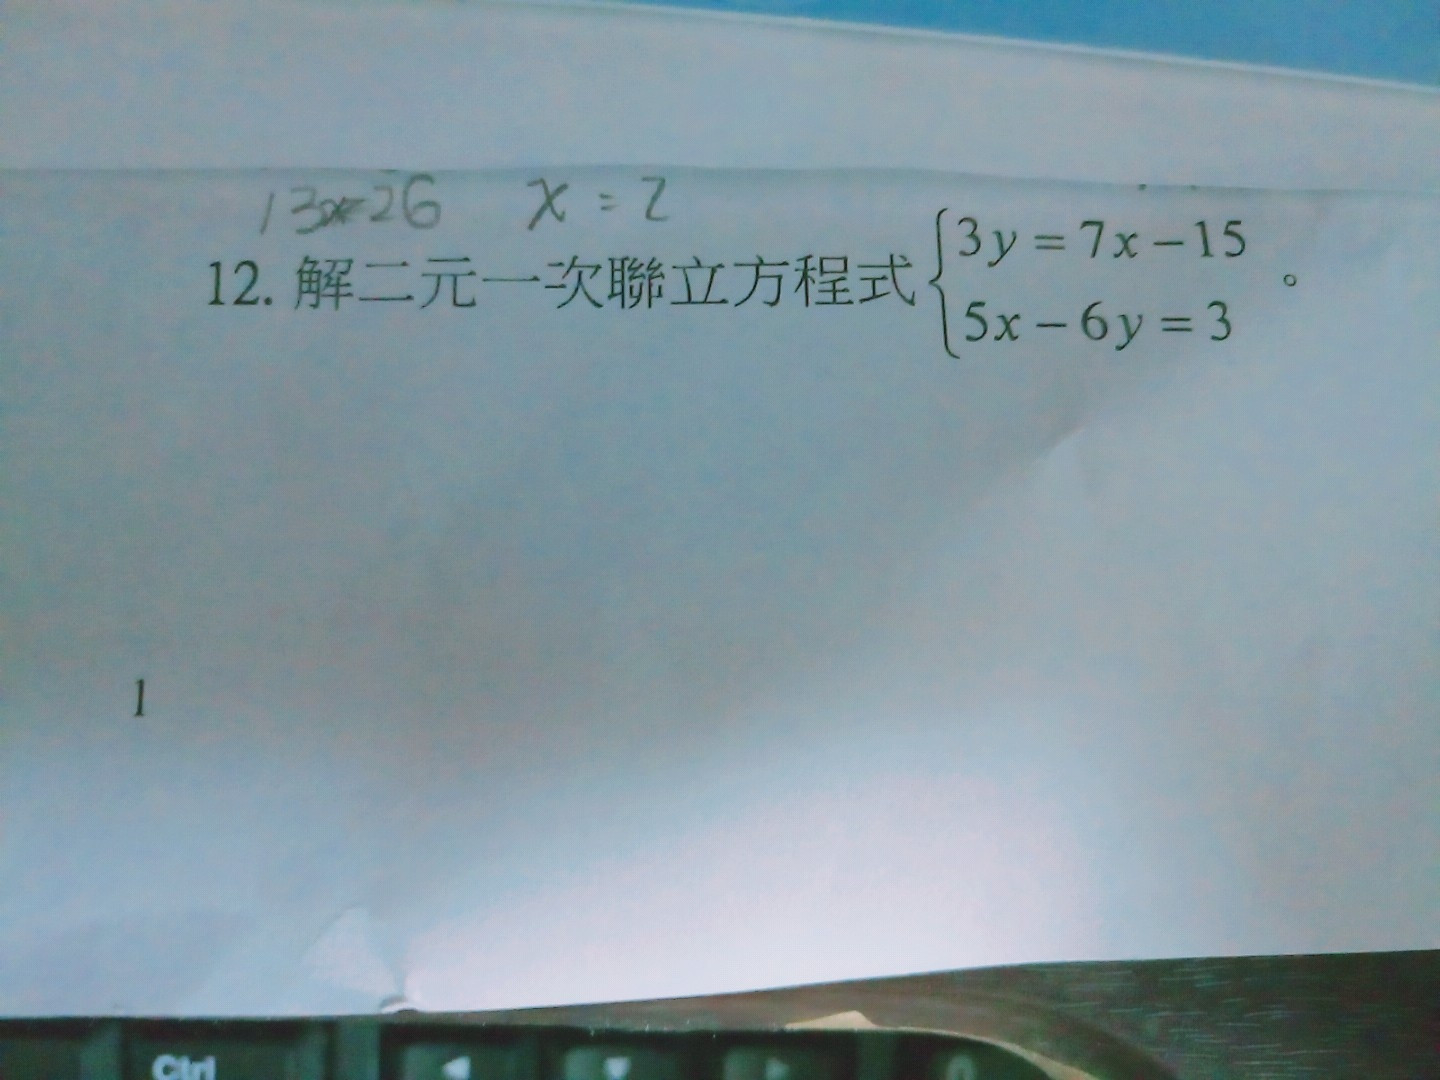 13x=26 x=2
12. 解二元一次聯立方程式 { 3y = 7x − 15
5x − 6y = 3 。
1
Ctrl